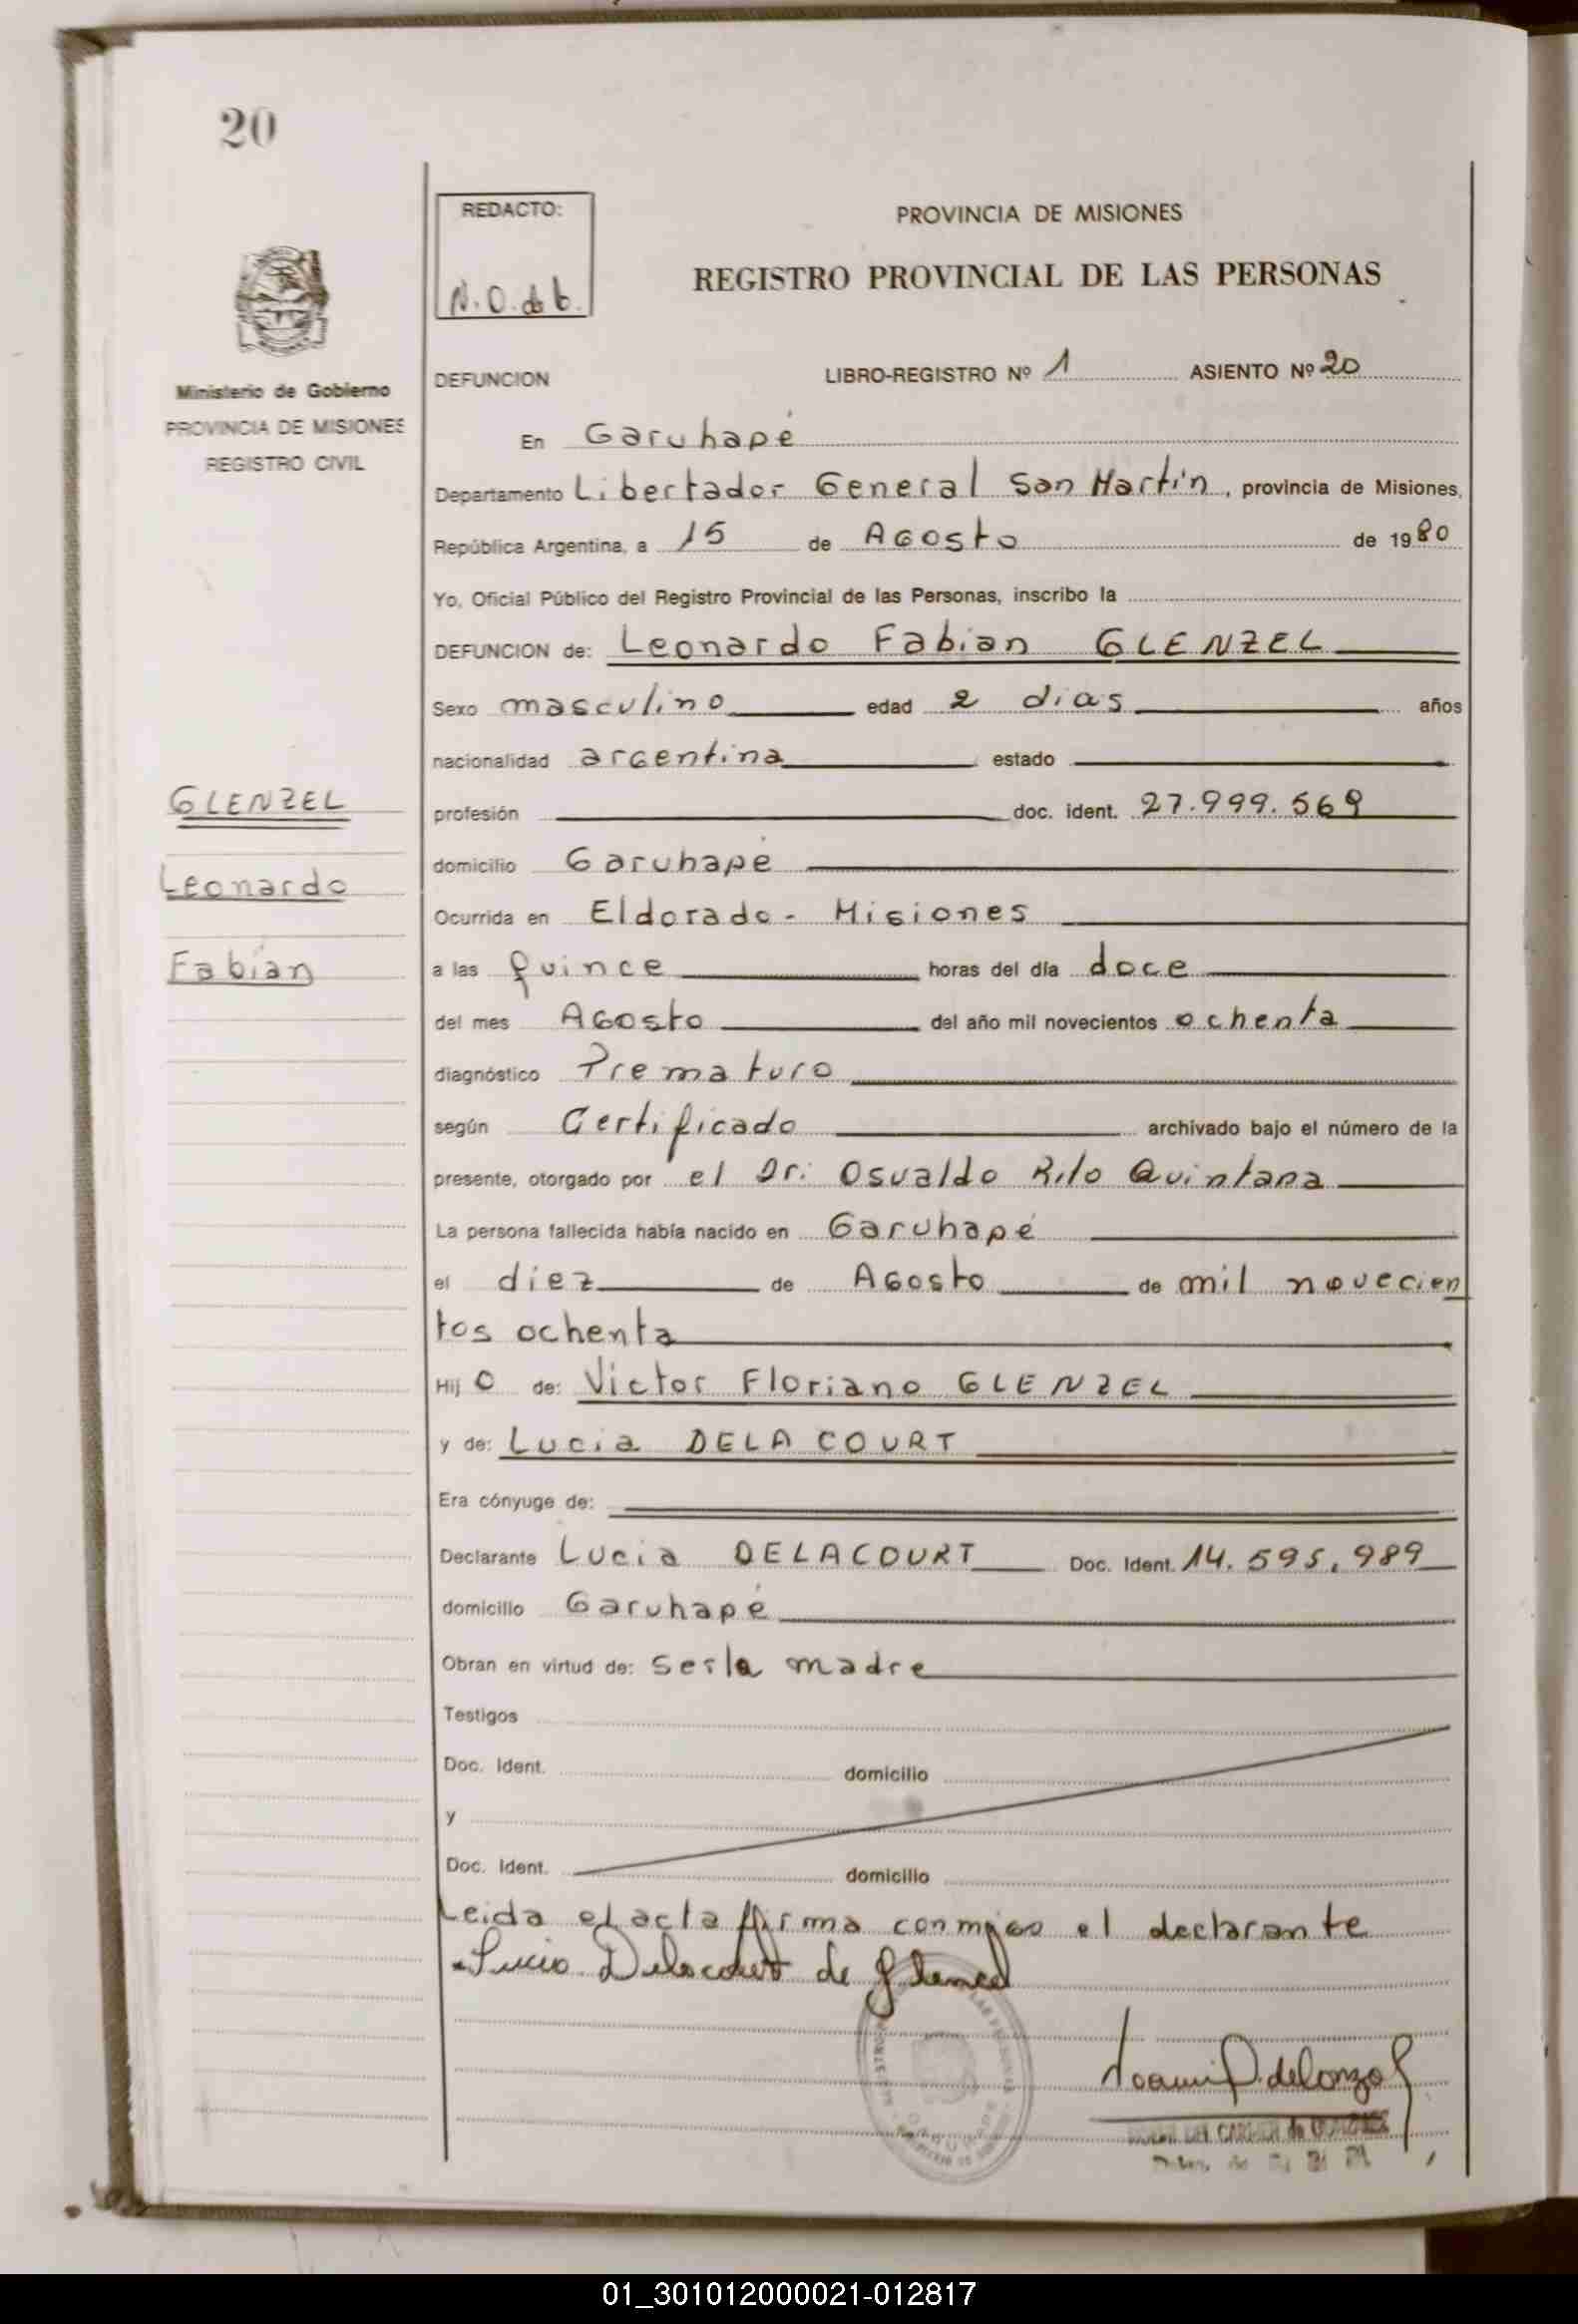 20
REDACTO:
N.O. de b.
PROVINCIA DE MISIONES
REGISTRO PROVINCIAL DE LAS PERSONAS
Ministerio de Gobierno
PROVINCIA DE MISIONES
REGISTRO CIVIL
DEFUNCION LIBRO-REGISTRO Nº 1 ASIENTO Nº 20
En Garuhapé
Departamento Libertador General San Martín, provincia de Misiones,
República Argentina, a 15 de Agosto de 1980
Yo, Oficial Público del Registro Provincial de las Personas, inscribo la
DEFUNCION de: Leonardo Fabian GLENZEL
Sexo masculino edad 2 dias años
nacionalidad argentina estado
GLENZEL
Leonardo
Fabian
profesión doc. ident. 27.999.569
domicilio Garuhapé
Ocurrida en Eldorado - Misiones
a las quince horas del día doce
del mes Agosto del año mil novecientos ochenta
diagnóstico Prematuro
según Certificado archivado bajo el número de la
presente, otorgado por el Dr. Osvaldo Rito Quintana
La persona fallecida había nacido en Garuhapé
el diez de Agosto de mil novecien
tos ochenta
Hijo de: Victor Floriano GLENZEL
y de: Lucia DELACOURT
Era cónyuge de:
Declarante Lucia DELACOURT Doc. Ident. 14.595.989
domicilio Garuhapé
Obran en virtud de: ser la madre
Testigos
Doc. Ident. domicilio
y
Doc. Ident. domicilio
Leida el acta firma conmigo el declarante
Lucia Delacourt de Glenzel
01_301012000021-012817